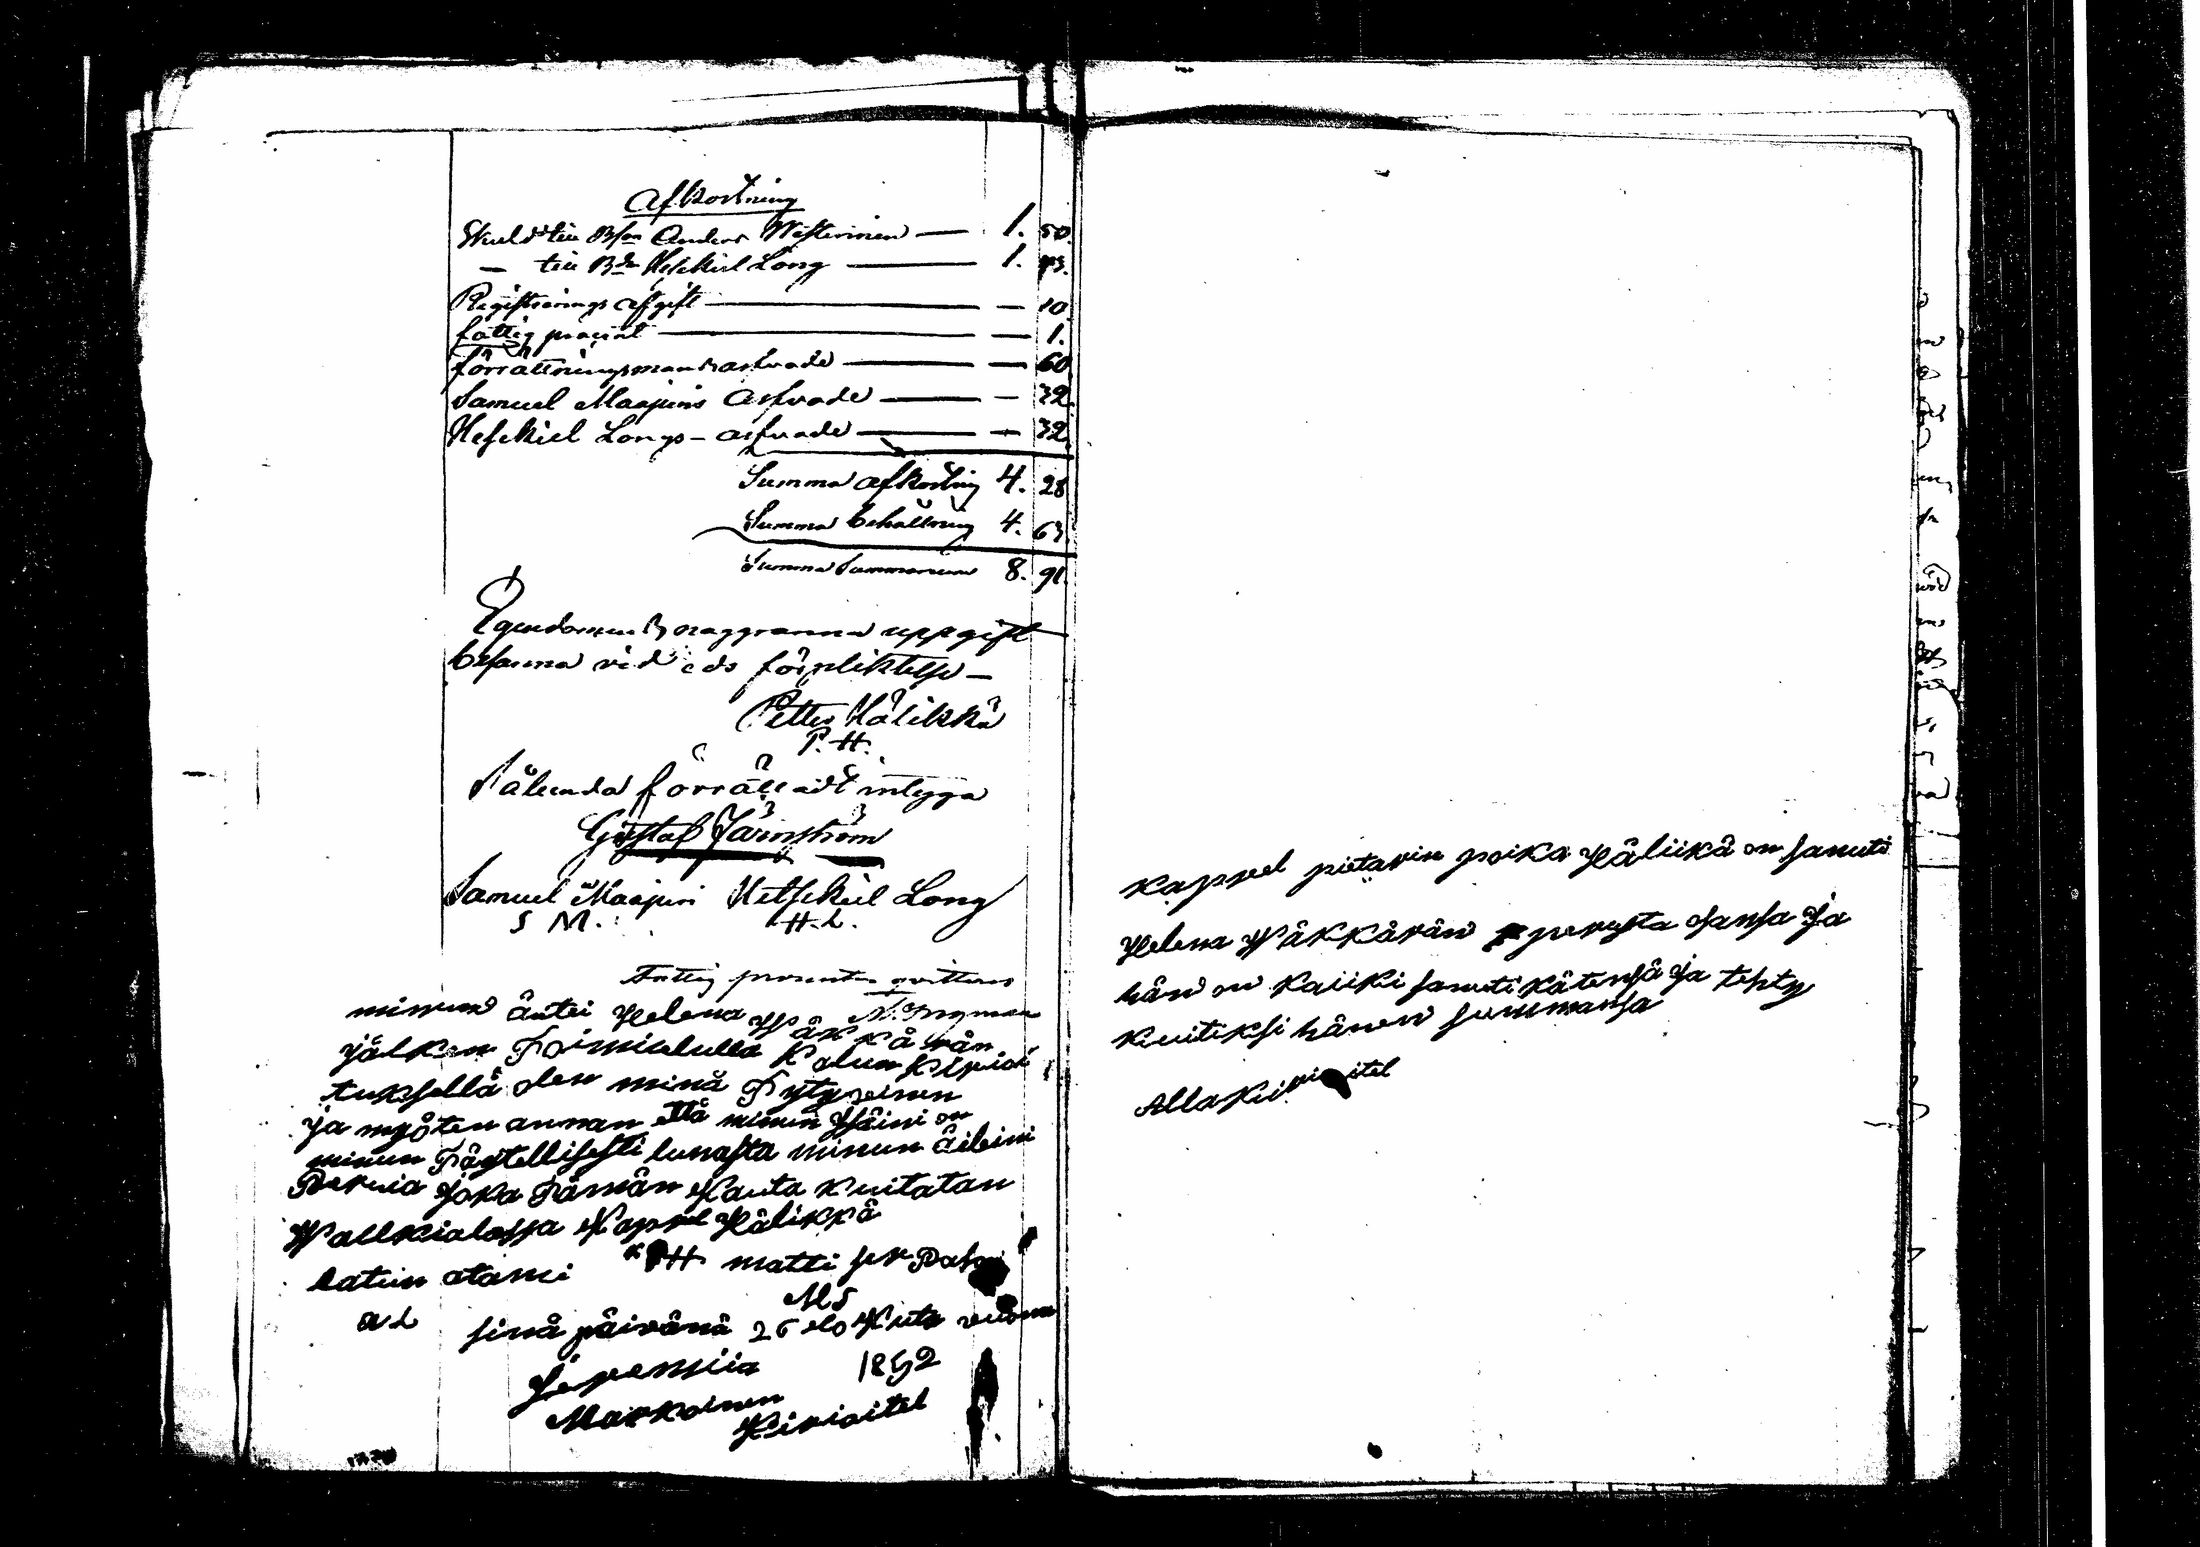 Afkortning
Skuld till Bfon Anders Westerinen — 1. 50.
— till Bde Hesekiel Long — 1. 43.
Registrerings afgift — — 10.
fattig procent — — 1.
förrättningsmans arfvode — — 60.
Samuel Maajuris Arfvode — — 32.
Hesekiel Longs - arfvode — — 32.
Summa afkortning 4. 28
Summa behållning 4. 63.
Summa Summarum 8. 91.
Egendomens noggranna uppgift
besanna vid eds förpliktelse —
Petter Hälikkä
P. H.
Sålunda förrättadt intyga
Gustaf Järnström
Samuel Maajuri Hetsekiel Long
S M. H. L.
Fattig procenten qvitteras
N. Nyman
minun äntei Helena Wäkkärän
jälken Toimitulla Kalun Kirioi
tuksella olen minä Tytyveinen
ja myöten annan että minun Isäini on
minun Täytellisesti lunasta minun äiteini
Peruia joka Tämän Kauta Kuitatan
Wallkialassa Kappel Hälikkä
latiin atami K H matti
a L M S
sinä päivänä 26 elo Kuta vuonna
Jeremiia 1892
Markoinen Kirioitel
Kappel pietarin poika Häliikä on sanuti
Helena Wäkkärän perysta osansa ja
hän on Kaiiki sanuti Kätensä ja tehty
Kuitiksi hänen summansa
Alla Kirioitel